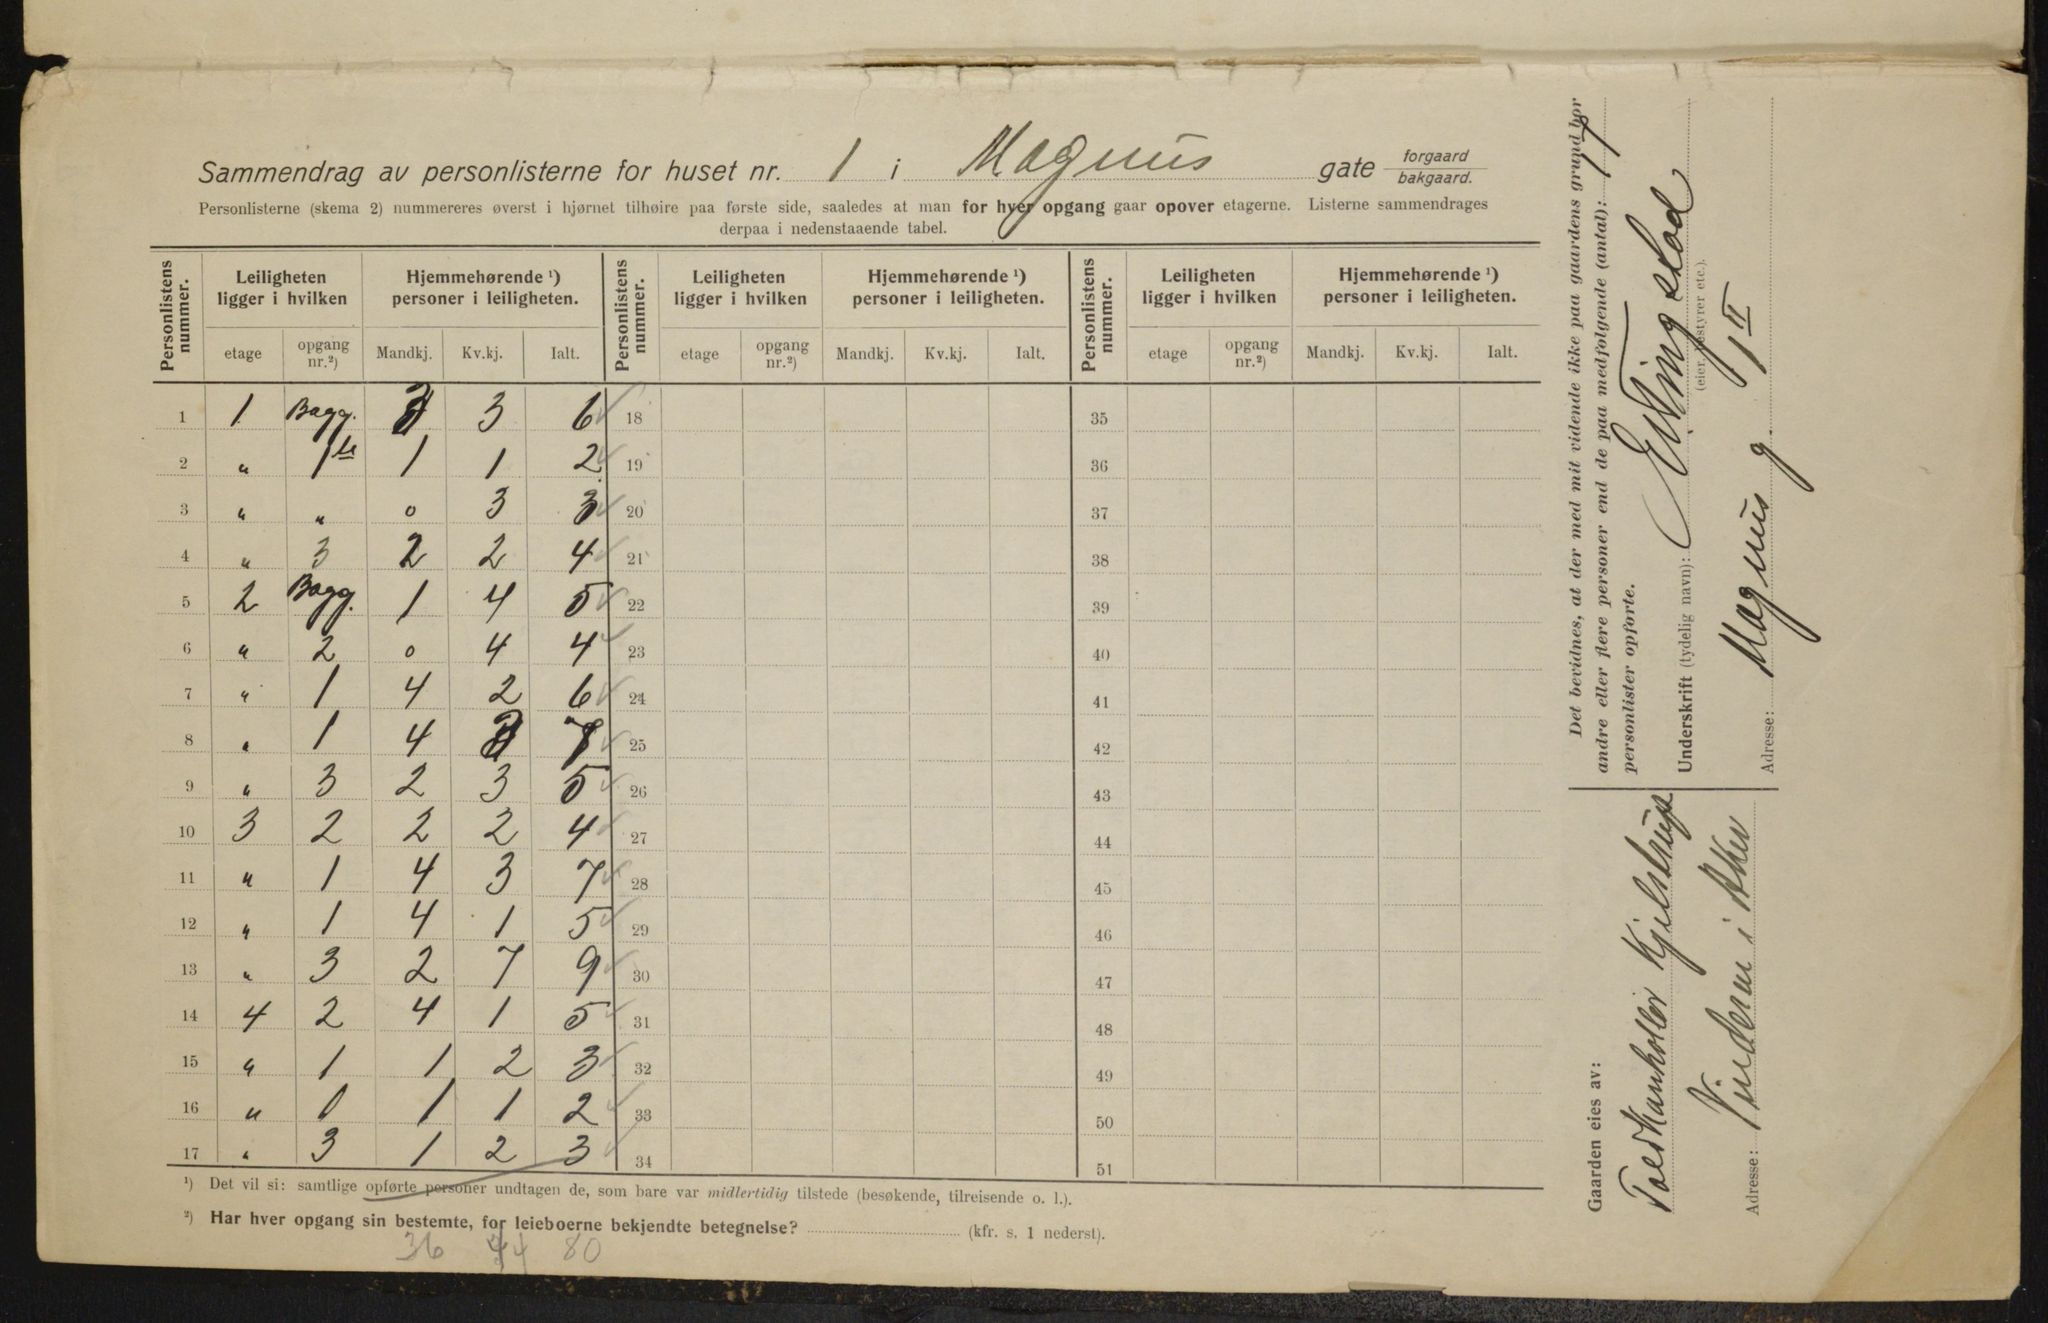 Sammendrag av personlisterne for huset nr. 1 i Magnus gate forgaard bakgaard.
Personlisterne (skema 2) nummereres øverst i hjørnet tilhøire paa første side, saaledes at man for hver opgang gaar opover etagerne. Listerne sammendrages
derpaa i nedenstaaende tabel.
Personlistens nummer. Leiligheten ligger i hvilken Hjemmehørende ¹) personer i leiligheten. Personlistens nummer. Leiligheten ligger i hvilken Hjemmehørende ¹) personer i leiligheten. Personlistens nummer. Leiligheten ligger i hvilken Hjemmehørende ¹) personer i leiligheten.
etage opgang nr.²) Mandkj. Kv.kj. Ialt. etage opgang nr.²) Mandkj. Kv.kj. Ialt. etage opgang nr.²) Mandkj. Kv.kj. Ialt.
1 1 Bagg. 3 3 6 18 35
2 " 1ste 1 1 2 19 36
3 " " 0 3 3 20 37
4 " 3 2 2 4 21 38
5 2 Bagg. 1 4 5 22 39
6 " 2 0 4 4 23 40
7 " 1 4 2 6 24 41
8 " 1 4 3 7 25 42
9 " 3 2 3 5 26 43
10 3 2 2 2 4 27 44
11 " 1 4 3 7 28 45
12 " 1 4 1 5 29 46
13 " 3 2 7 9 30 47
14 4 2 4 1 5 31 48
15 " 1 1 2 3 32 49
16 " 1 1 2 33 50
17 " 3 1 2 3 34 51
¹) Det vil si: samtlige opførte personer undtagen de, som bare var midlertidig tilstede (besøkende, tilreisende o. l.).
²) Har hver opgang sin bestemte, for leieboerne bekjendte betegnelse? (kfr. s. 1 nederst).
36 44 80
Det bevidnes, at der med mit vidende ikke paa gaardens grund bor
andre eller flere personer end de paa medfølgende (antal): 17
personlister opførte.
Underskrift (tydelig navn):
(eier, bestyrer etc.).
Adresse: Magnus g. 1 II
Gaarden eies av:
Kjelstrup
Adresse: Vinderen i Aker